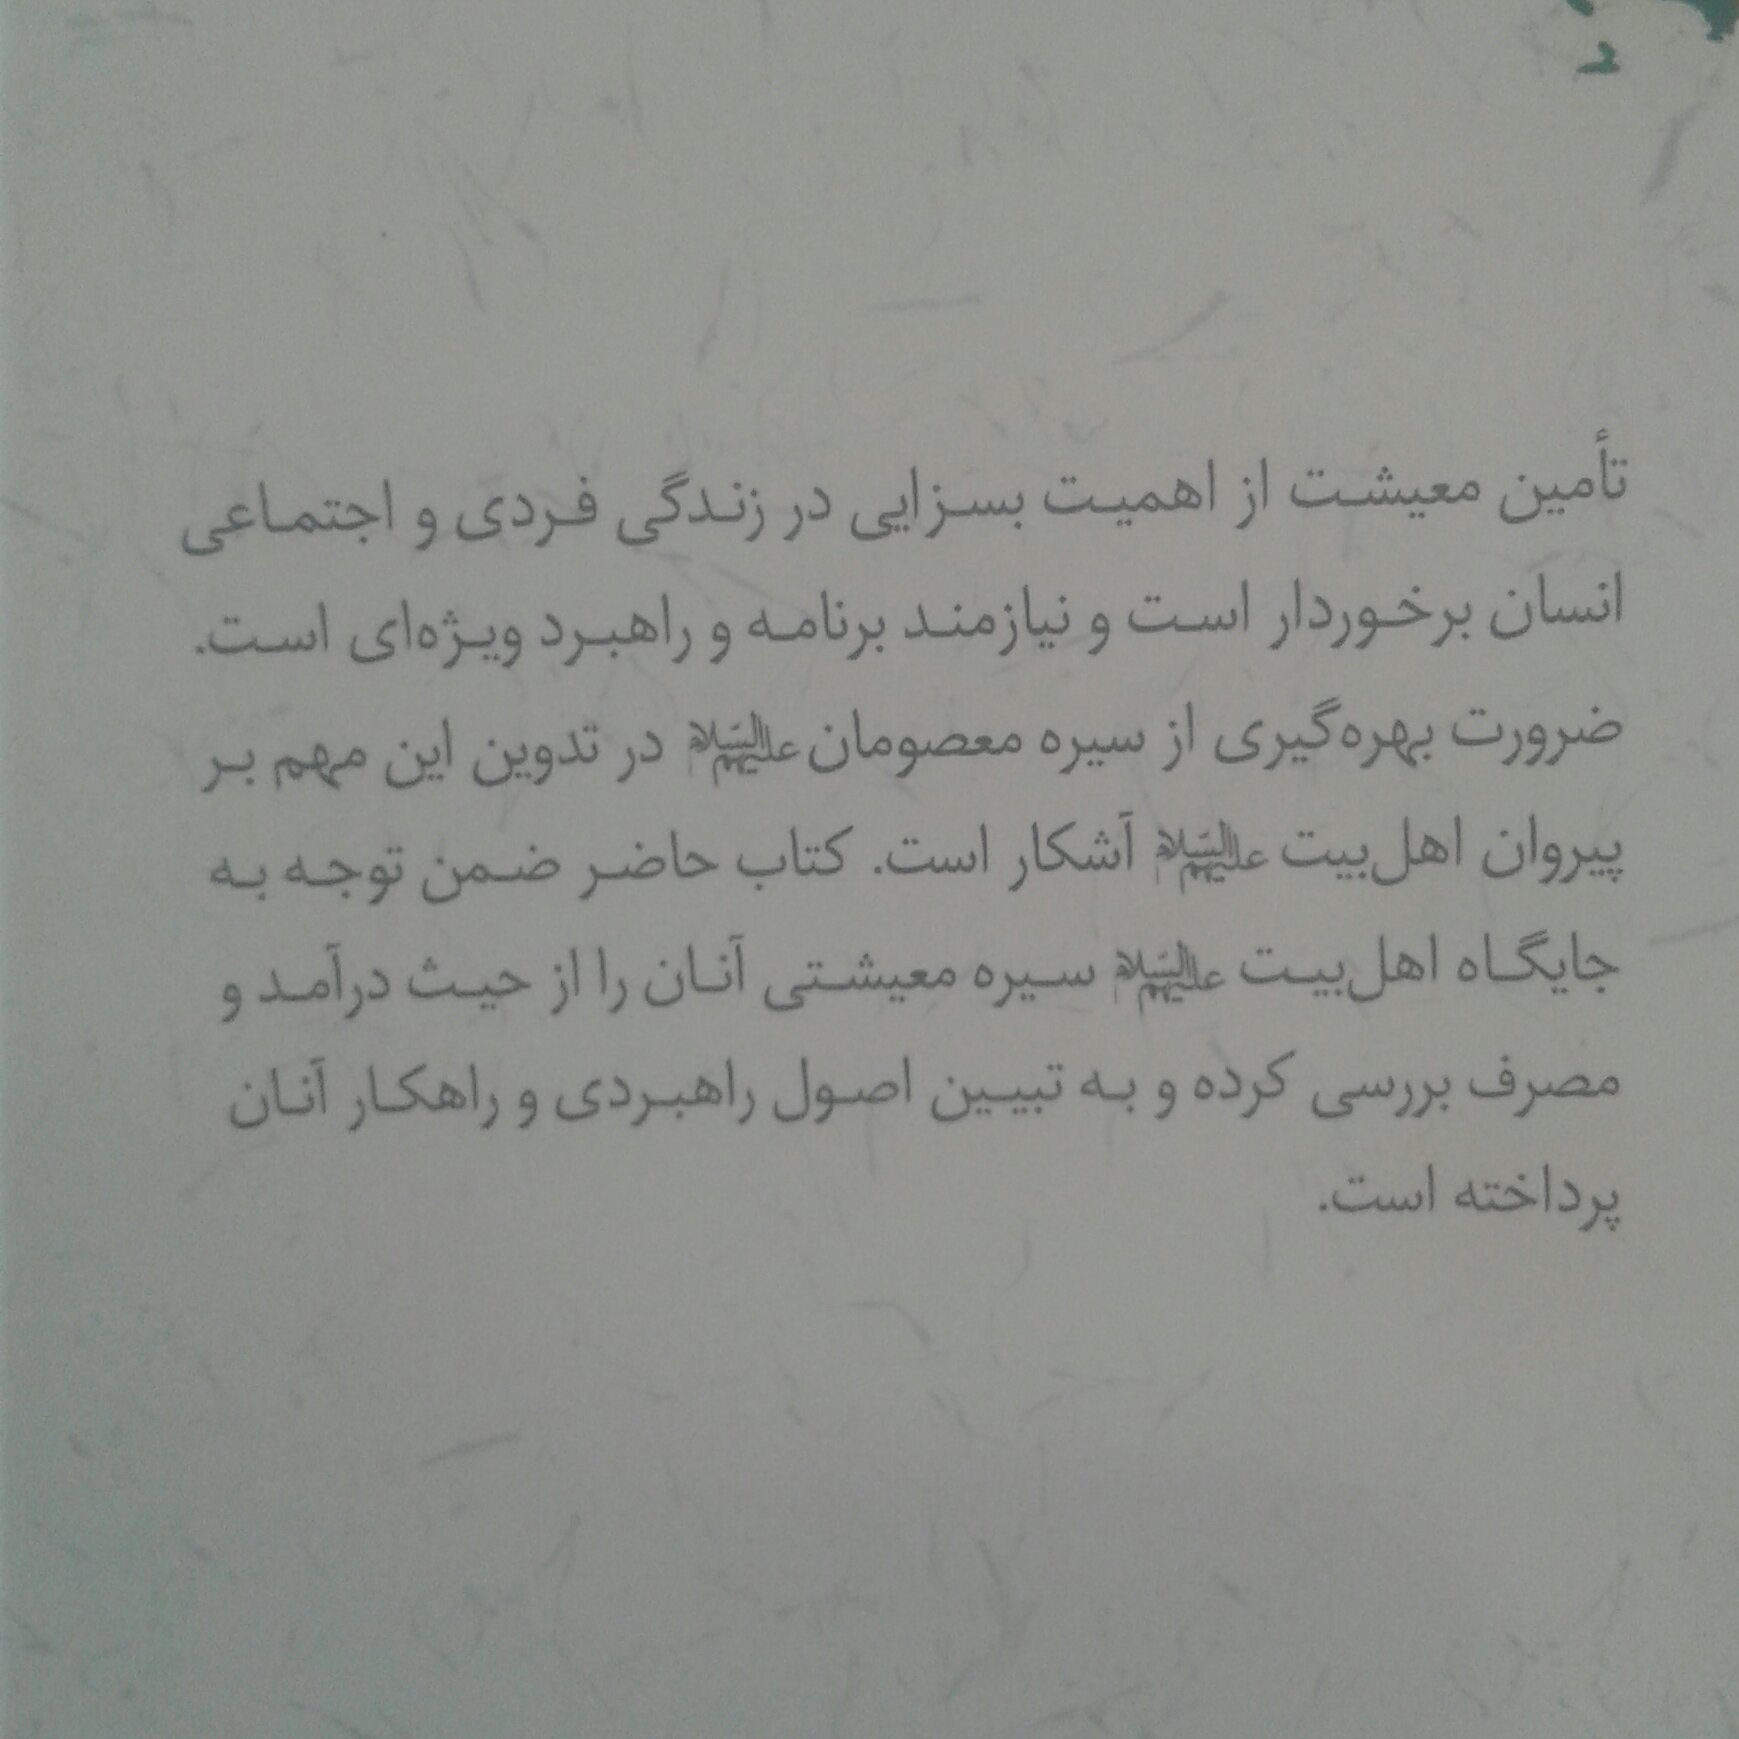 تأمین معیشت از اهمیت بسزایی در زندگی فردی و اجتماعی
انسان برخوردار است و نیازمند برنامه و راهبرد ویژه‌ای است.
ضرورت بهره‌گیری از سیره معصومان علیهم السلام در تدوین این مهم بر
پیروان اهل‌بیت علیهم السلام آشکار است. کتاب حاضر ضمن توجه به
جایگاه اهل‌بیت علیهم السلام سیره معیشتی آنان را از حیث درآمد و
مصرف بررسی کرده و به تبیین اصول راهبردی و راهکار آنان
پرداخته است.